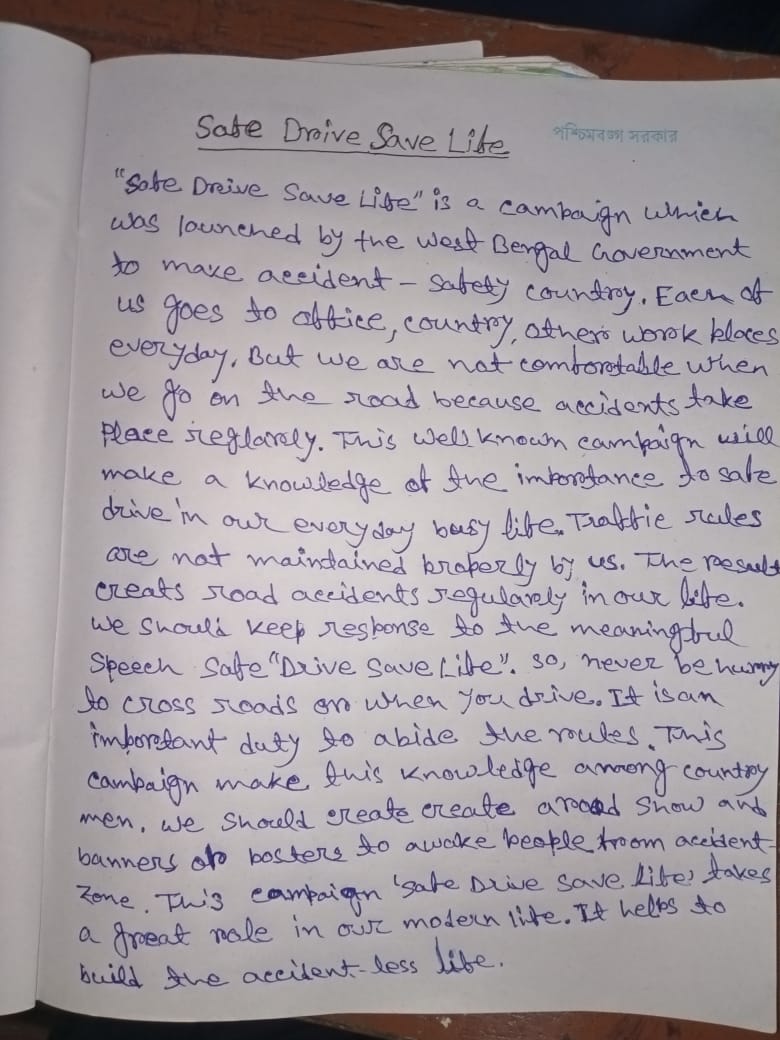 Safe Drive Save Life
পশ্চিমবঙ্গ সরকার
"Safe Drive Save Life" is a campaign which
was launched by the West Bengal Government
to make accident - safety country. Each of
us goes to office, country, others work places
everyday. But we are not comfortable when
we go on the road because accidents take
place reglarly. This well known campaign will
make a knowledge of the importance to safe
drive in our everyday busy life. Traffic rules
are not maintained properly by us. The result
creats road accidents regularly in our life.
We should keep response to the meaningful
speech Safe "Drive Save Life". So, never be hurry
to cross roads or when you drive. It is an
important duty to abide the rules. This
campaign make this knowledge among country
men. We should create create a road show and
banners or posters to awake people from accident-
zone. This campaign 'Safe Drive Save Life' takes
a great role in our modern life. It helps to
build the accident-less life.